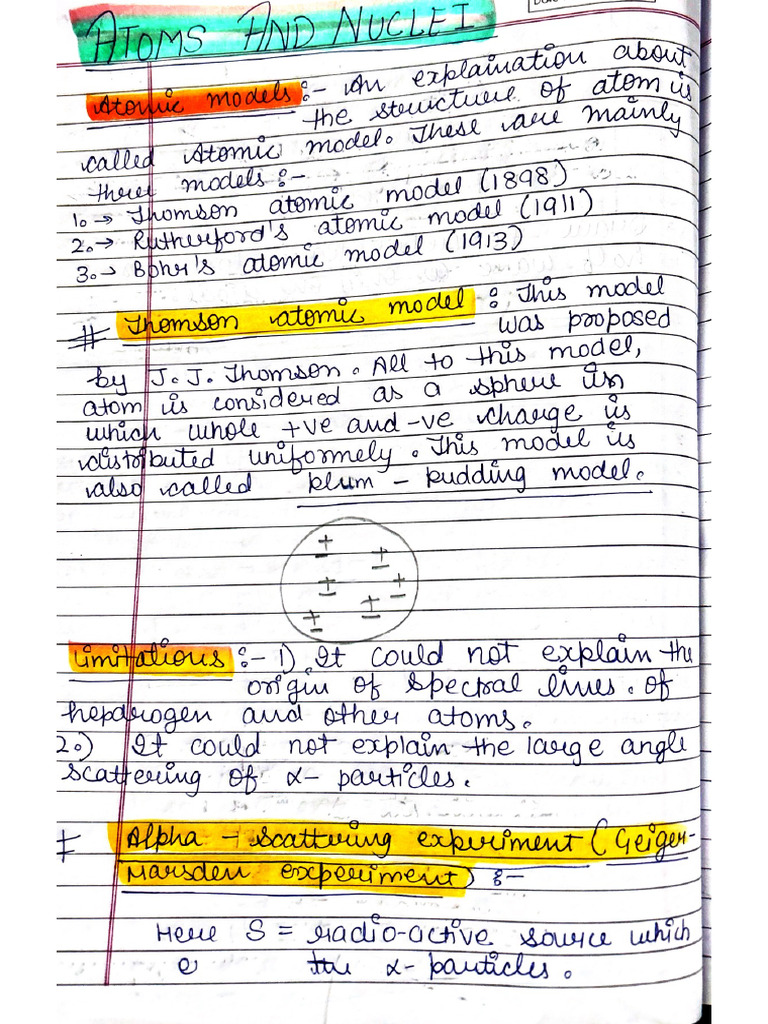 ATOMS AND NUCLEI
Atomic models :- An explaination about
the structure of atom is
called Atomic model. These are mainly
three models :-
1. → Thomson atomic model (1898)
2. → Rutherford's atomic model (1911)
3. → Bohr's atomic model (1913)
# Thomson atomic model : This model
was proposed
by J. J. Thomson. All to this model,
atom is considered as a sphere in
which whole +ve and -ve charge is
distributed uniformely. This model is
also called plum - pudding model.
+ -
+ -
+ -
+ -
+ -
+ -
Limitations :- 1) It could not explain the
origin of spectral lines. of
hepdrogen and other atoms.
2.) It could not explain the large angle
scattering of α- particles.
Alpha - scattering experiment (Geiger-
Marsden experiment) :-
Here S = radio-active source which
e the α-particles.